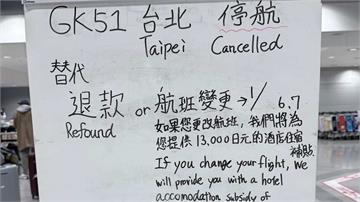 GK51 台北 停航
Taipei Cancelled
替代
退款 or 航班變更→1/6.7
Refound
如果您更改航班，我們將為
您提供13,000日元的酒店住宿
補貼
If you change your flight, We
will provide you with a hotel
accomodation subsidy of